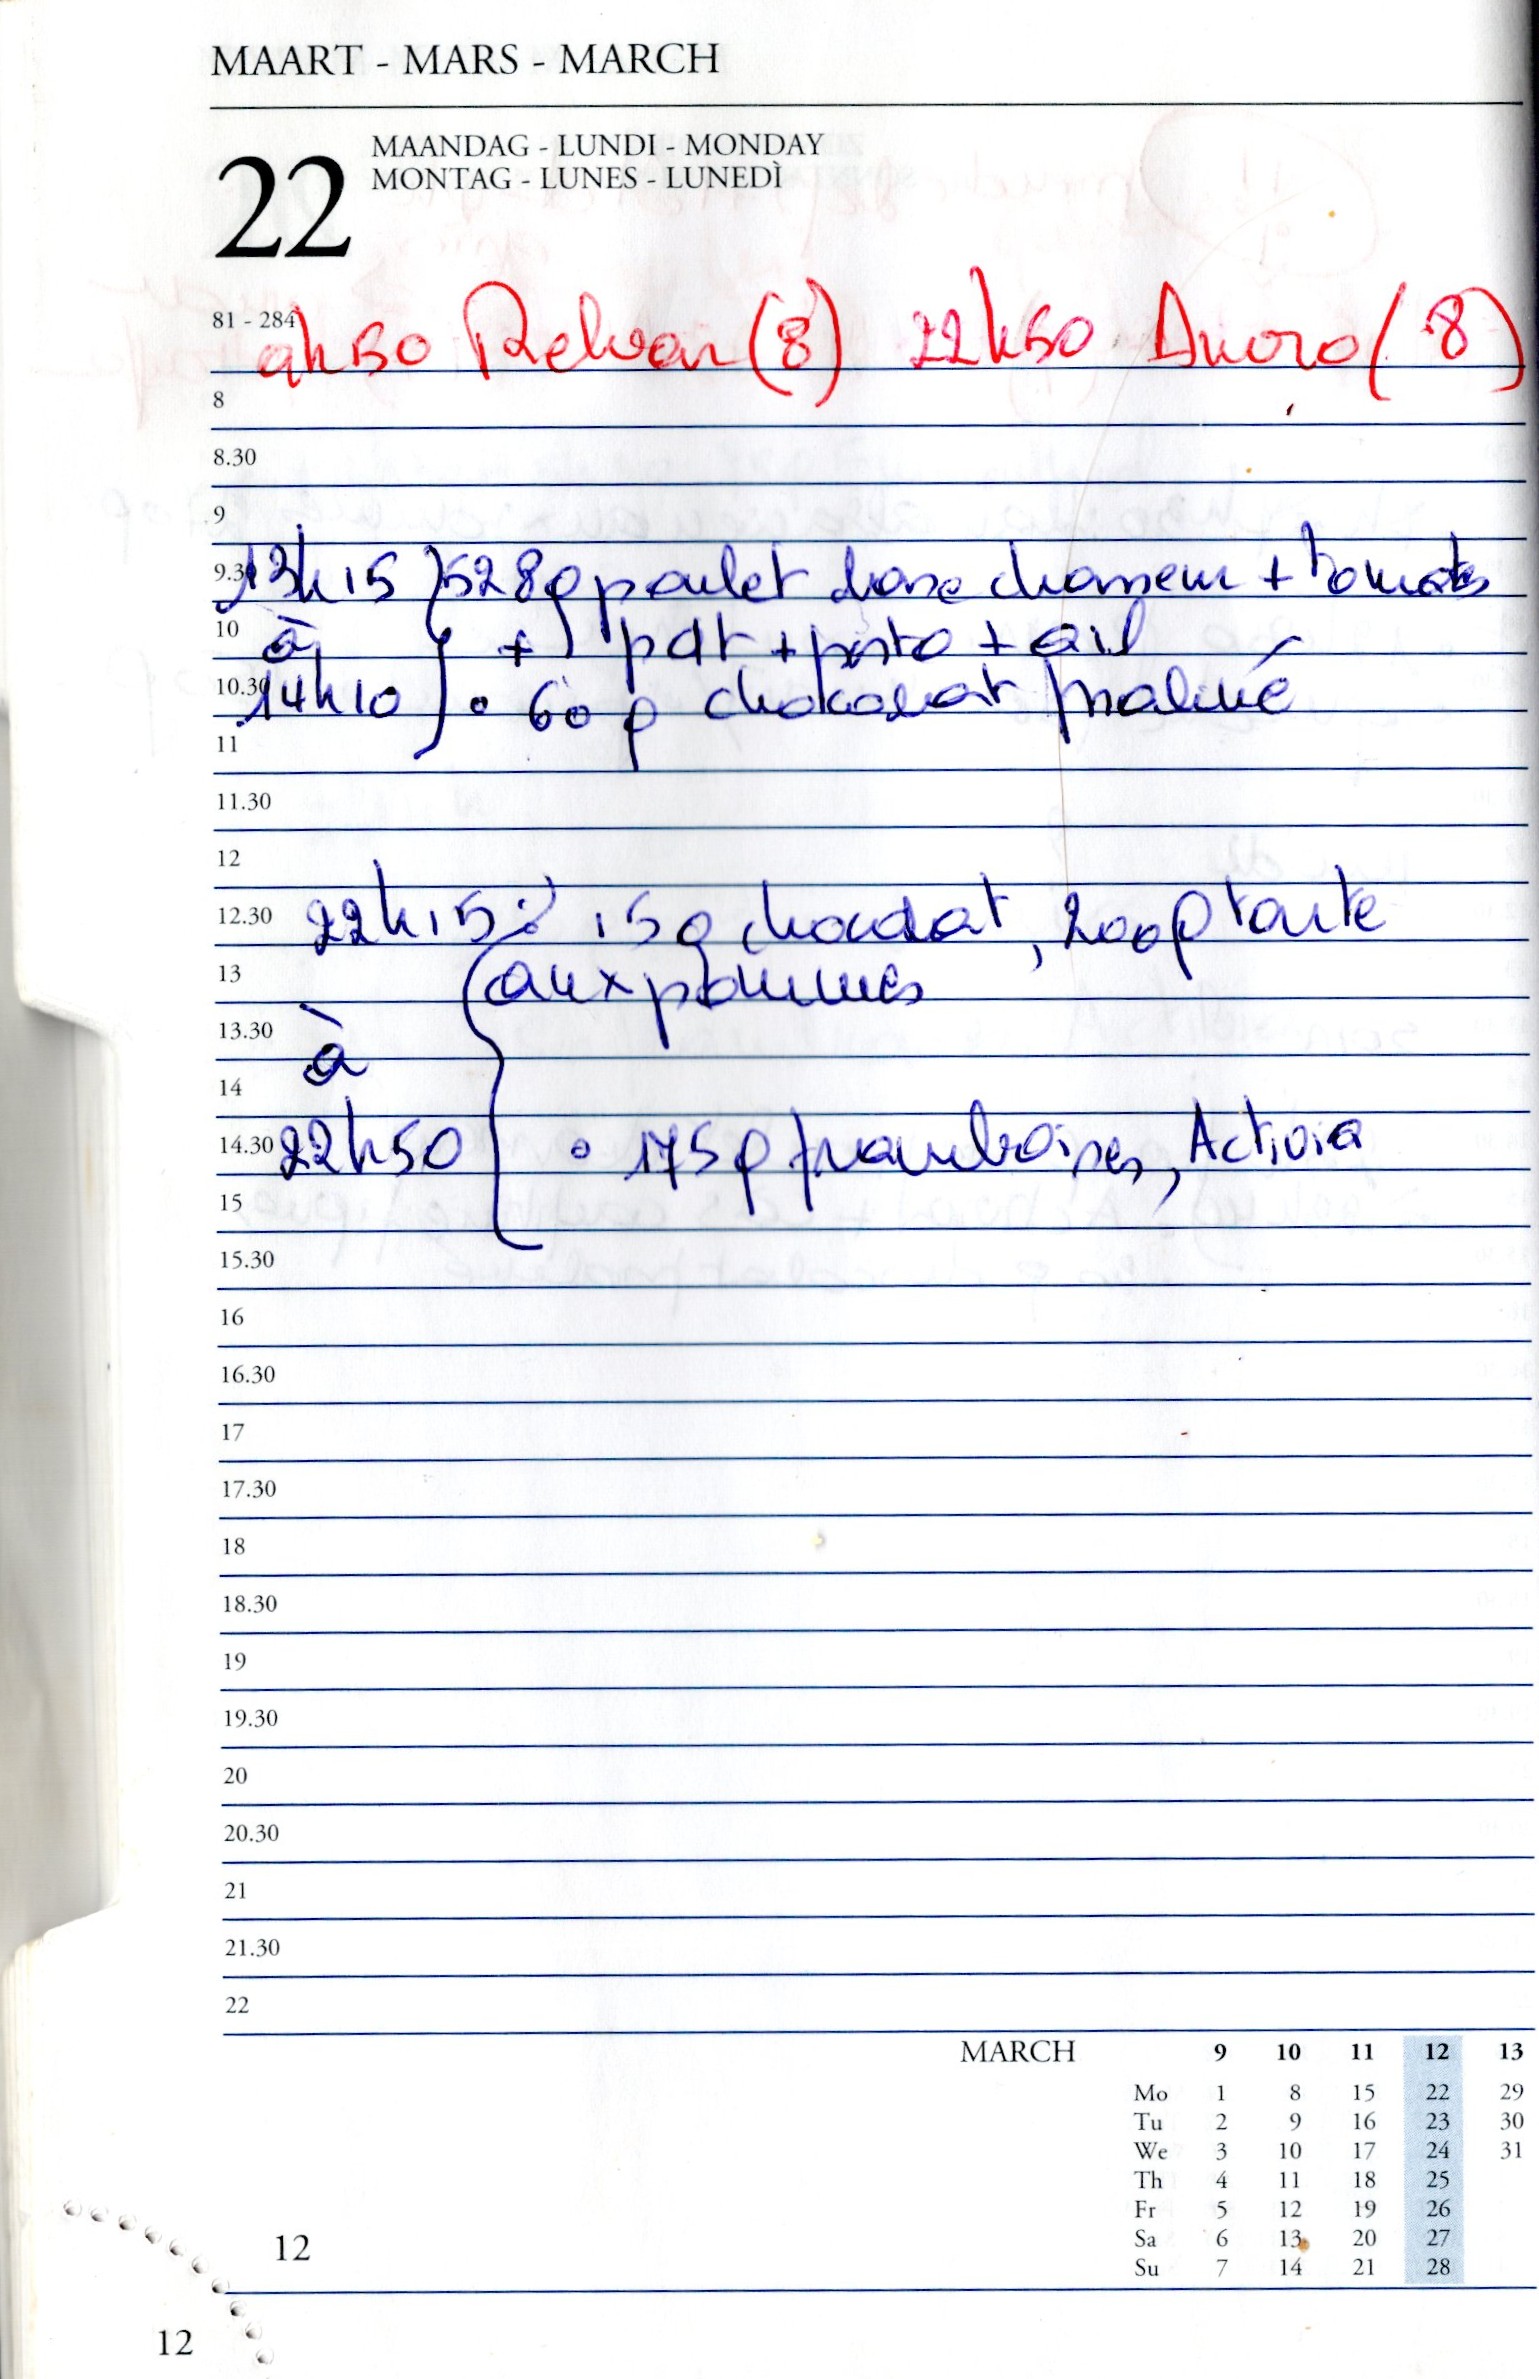 MAART - MARS - MARCH
22
MAANDAG - LUNDI - MONDAY
MONTAG - LUNES - LUNEDÌ
81 - 284
9h50 Relvar (8) 22h50 Anoro (8)
8
8.30
9
9.30 13h15 528g poulet chasseur + tomates
10 à + pdt + pesto + ail
10.30 14h10 • 60 g chokolat praliné
11
11.30
12
12.30 22h15 : 15g chocolat, 200g tarte
13 aux pommes
13.30 à
14
14.30 22h50 • 175g framboises, Activia
15
15.30
16
16.30
17
17.30
18
18.30
19
19.30
20
20.30
21
21.30
22
MARCH 9 10 11 12 13
Mo 1 8 15 22 29
Tu 2 9 16 23 30
We 3 10 17 24 31
Th 4 11 18 25
Fr 5 12 19 26
Sa 6 13 20 27
Su 7 14 21 28
12
12